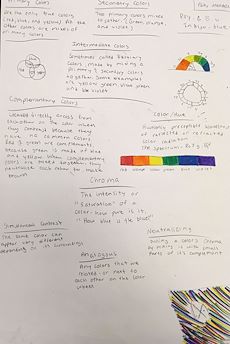 Primary Colors
Secondary Colors
are the only true colors
(red, blue, and yellow). All the
other colors are mixes of
primary colors
The primary colors mixed
together (green, orange,
and violet)
Intermediate Colors
Sometimes called tertiary
colors, made by mixing a
primary & secondary colors
together. Some examples
are yellow green, blue green
and blue violet
Complementary Colors
Located directly across from
each other on the color wheel
they contrast because they
have no common colors.
Red & green are complements
because green is made of blue
and yellow. When complementary
colors are mixed together, they
neutralize each other to make
brown
Color/Hue
Humanly perceptible wavelengths
of reflected or refracted
color radiation
The spectrum: R O Y G B
red orange yellow green blue violet
Chroma
The intensity or
"saturation" of a
color - how pure is it,
"How blue is the blue?"
Simultaneous Contrast
The same color can
appear very different
depending on its surroundings
Neutralizing
Dulling a color's chroma
by mixing it with small
parts of its complement
Analogous
Any colors that are
related or next to
each other on the color
wheel